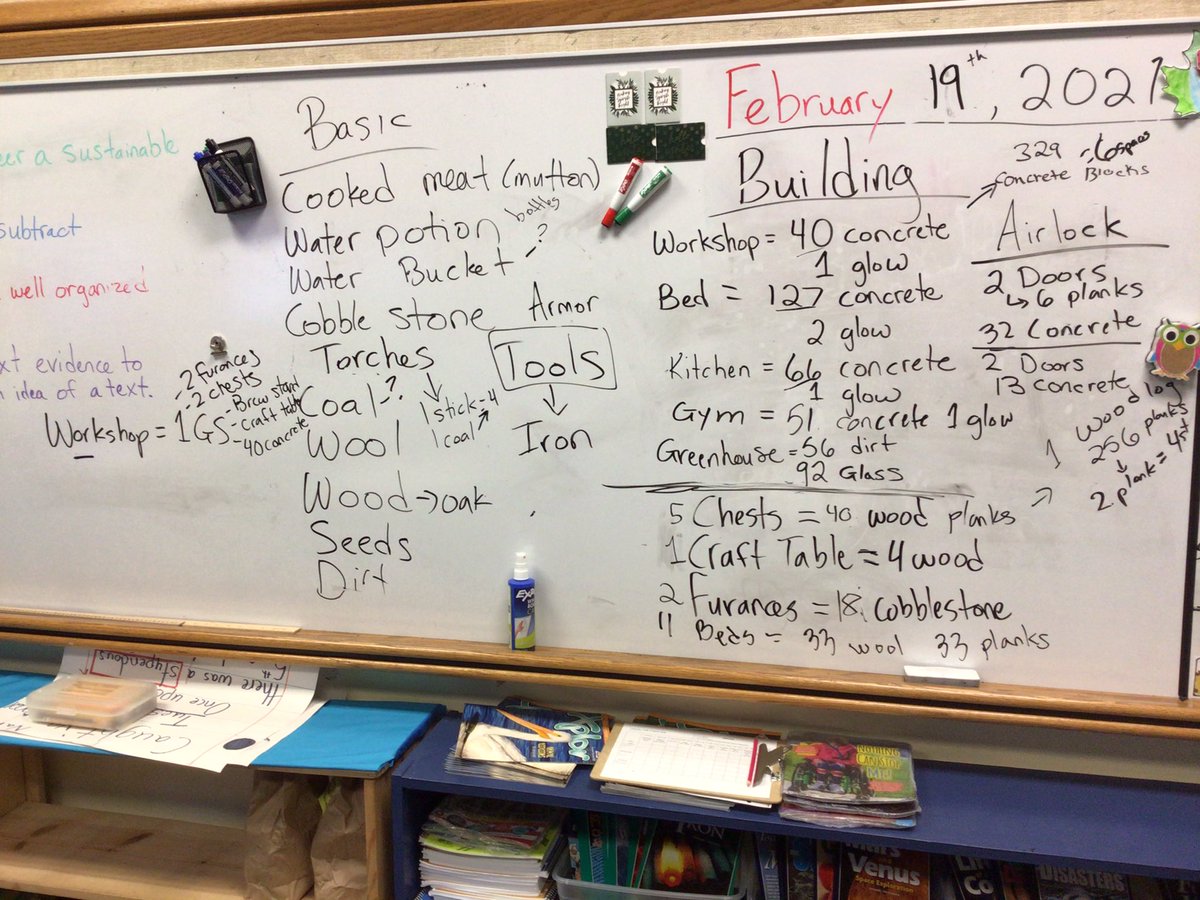 eer a sustainable
subtract
well organized
xt evidence to
idea of a text.
Workshop = 1GS
-2 furances
-2 chests
-Brew stand
-craft table
-40 concrete
Basic
Cooked meat (mutton)
Water potion bottles
Water Bucket - ?
Cobble stone
Torches
1 stick = 4
1 coal
Coal - ?
Wool
Wood → oak
Seeds
Dirt
Armor
Tools
Iron
February 19th, 2021
Building
329
Concrete Blocks
Workshop = 40 concrete
1 glow
Bed = 127 concrete
2 glow
Kitchen = 66 concrete
1 glow
Gym = 51 concrete 1 glow
Greenhouse = 56 dirt
92 Glass
Airlock
2 Doors
↳ 6 planks
32 Concrete
2 Doors
13 concrete
wood log
256 planks
2 plank = 4
5 Chests = 40 wood planks
1 Craft Table = 4 wood
2 Furances = 18 cobblestone
11 Beds = 33 wool 33 planks
EXPO
there was a stupendous
Once upo
Caught
NOTHING CAN STOP ME!
Mars
Venus
Space Exploration
DISASTERS